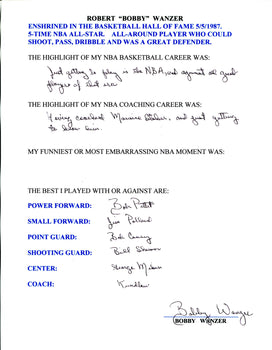 ROBERT "BOBBY" WANZER
ENSHRINED IN THE BASKETBALL HALL OF FAME 5/5/1987.
5-TIME NBA ALL-STAR. ALL-AROUND PLAYER WHO COULD
SHOOT, PASS, DRIBBLE AND WAS A GREAT DEFENDER.
THE HIGHLIGHT OF MY NBA BASKETBALL CAREER WAS:
Just getting to play in the NBA, and against all good
players of that era
THE HIGHLIGHT OF MY NBA COACHING CAREER WAS:
Having coached Maurice Stokes, and just getting
to know him.
MY FUNNIEST OR MOST EMBARRASSING NBA MOMENT WAS:
THE BEST I PLAYED WITH OR AGAINST ARE:
POWER FORWARD: Bob Pettit
SMALL FORWARD: Jim Pollard
POINT GUARD: Bob Cousy
SHOOTING GUARD: Bill Sharman
CENTER: George Mikan
COACH: Kundla
Bobby Wanzer
BOBBY WANZER